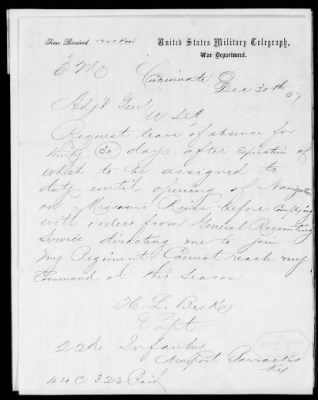 Time Received 1240 Pm
United States Military Telegraph,
War Department.
Cincinnati O
Dec 30th 67
Adjt Genl
U S A
Request leave of absence for
thirty (30) days after expiration of
which to be assigned to
duty until opening of Navigation
on Missouri River before complying
with orders from General Recruiting
Service directing me to join
my Regiment Cannot reach my
Command at this Season
H. L. Beck
Capt
22d Infantry
Newport Barracks
Ky
44 C 322 Paid